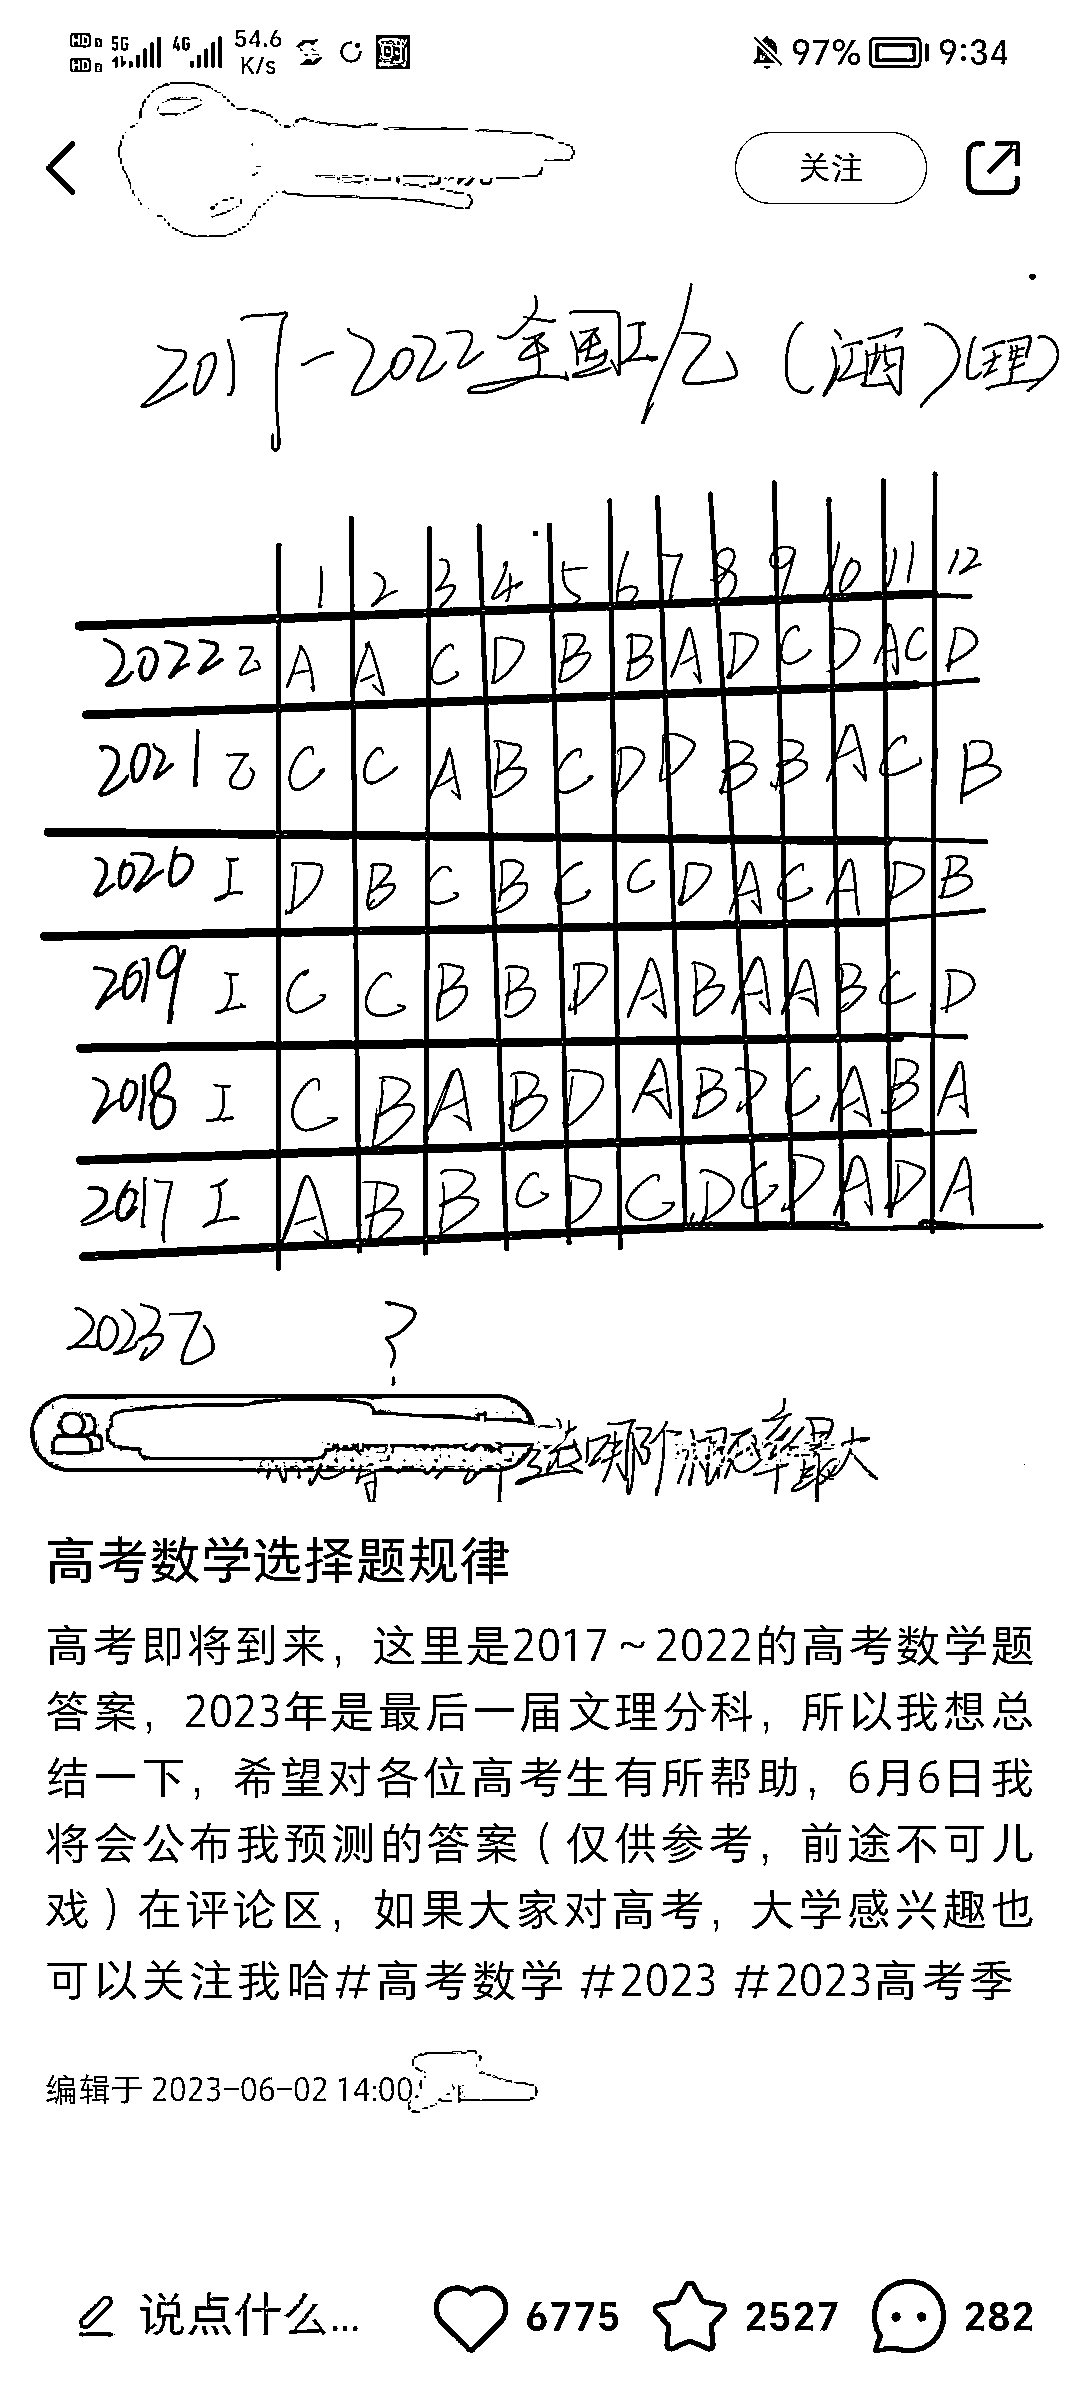 HD 5G 4G 54.6 K/s 97% 9:34
关注
2017-2022全国I/乙(江西)(理)
1 2 3 4 5 6 7 8 9 10 11 12
2022乙 A A C D B B A D C D AC D
2021乙 C C A B C D D B B A C B
2020 I D B C B C C D A C A D B
2019 I C C B B D A B A A B C D
2018 I C B A B D A B D C A B A
2017 I A B B C D C D C D A D A
2023乙 ?
选哪个概率最大
高考数学选择题规律
高考即将到来，这里是2017～2022的高考数学题
答案，2023年是最后一届文理分科，所以我想总
结一下，希望对各位高考生有所帮助，6月6日我
将会公布我预测的答案（仅供参考，前途不可儿
戏）在评论区，如果大家对高考，大学感兴趣也
可以关注我哈#高考数学 #2023 #2023高考季
编辑于 2023-06-02 14:00
说点什么... 6775 2527 282